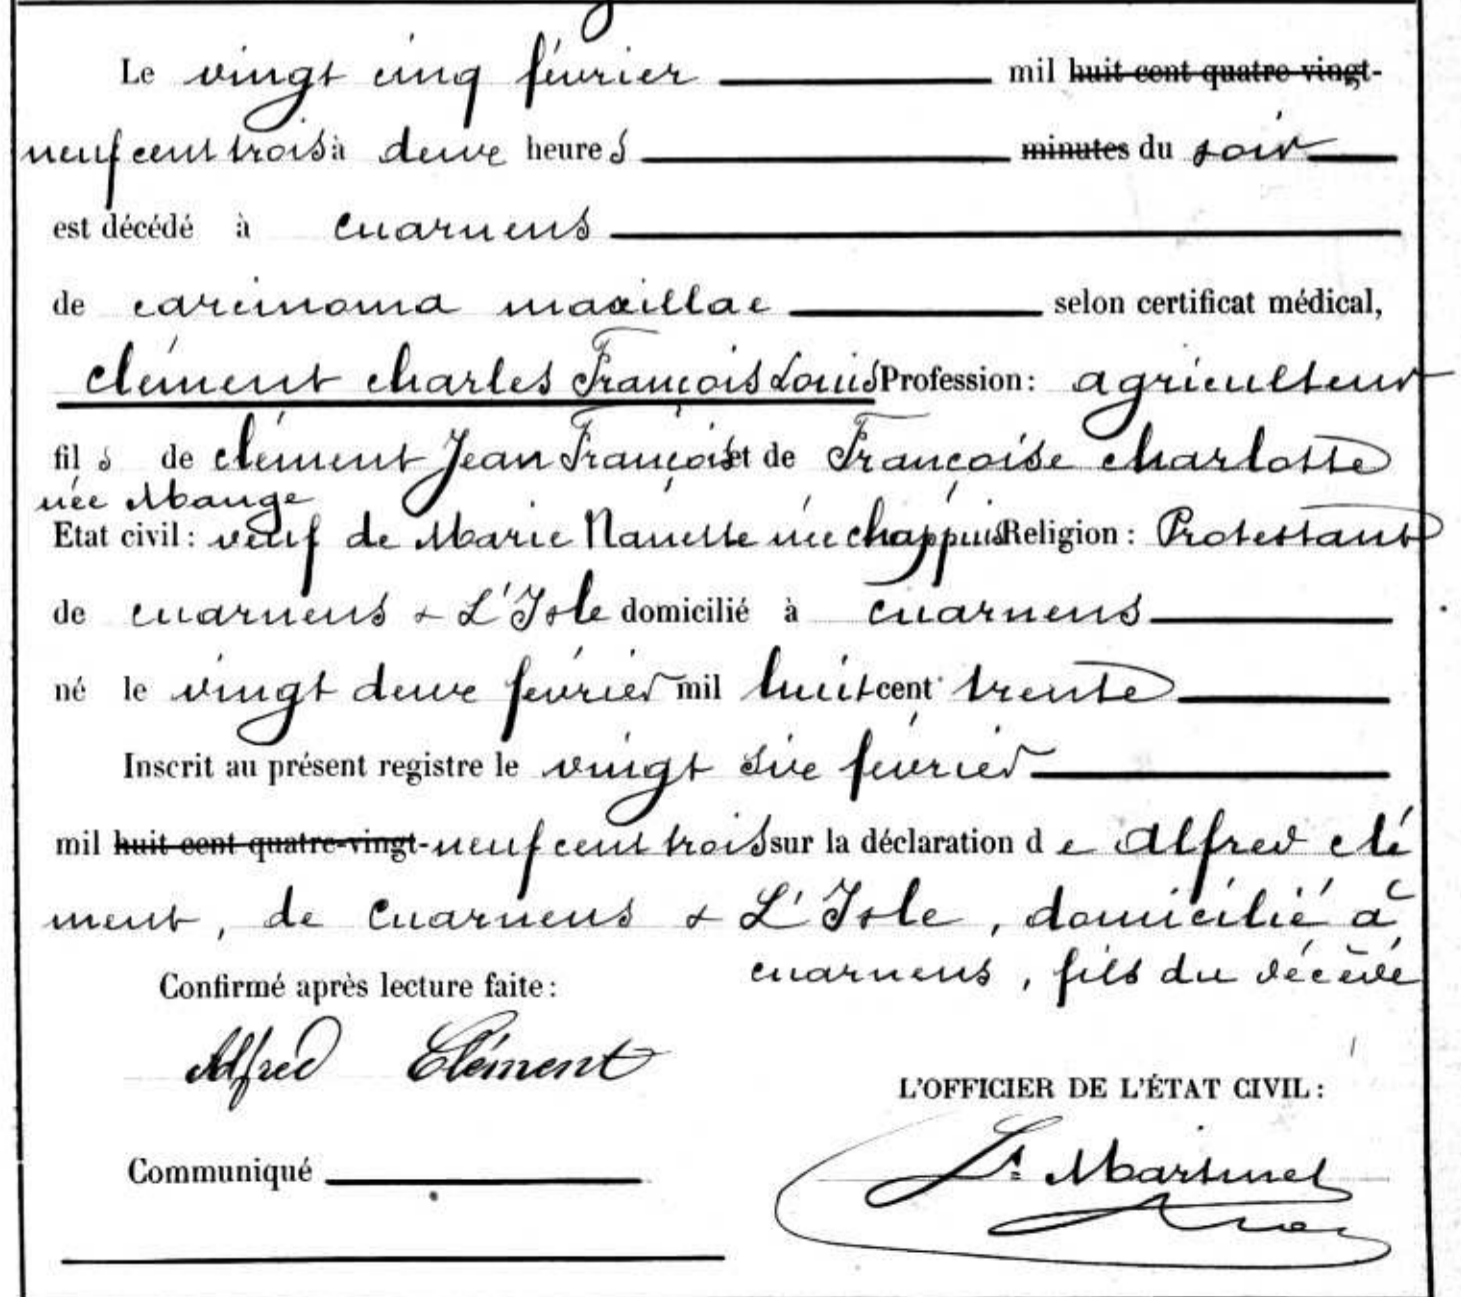 Le vingt cinq février mil huit cent quatre-vingt-
neuf cent trois à deux heures minutes du soir
est décédé à Cuarnens
de carcinoma maxillae selon certificat médical,
Clément Charles François Louis Profession: agriculteur
fils de Clément Jean François et de Françoise Charlotte
née Mange
Etat civil: veuf de Marie Nanette née Chappuis Religion: Protestant
de Cuarnens & L'Isle domicilié à Cuarnens
né le vingt deux février mil huit cent trente
Inscrit au présent registre le vingt six février
mil huit cent quatre-vingt- neuf cent trois sur la déclaration de Alfred Clé
ment, de Cuarnens & L'Isle, domicilié à
Cuarnens, fils du décédé
Confirmé après lecture faite:
Alfred Clément
L'OFFICIER DE L'ÉTAT CIVIL:
Communiqué
Ls Martinet